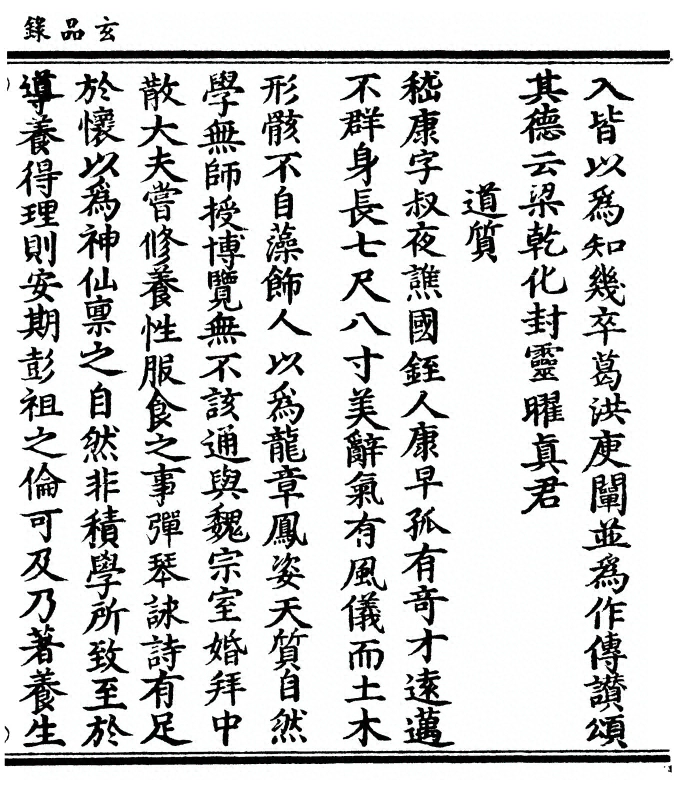 玄品錄
入皆以爲知幾卒葛洪庾闡並爲作傳讚頌
其德云梁乾化封靈曜真君
道質
嵇康字叔夜譙國銍人康早孤有奇才遠邁
不群身長七尺八寸美辭氣有風儀而土木
形骸不自藻飾人以爲龍章鳳姿天質自然
學無師授博覽無不該通與魏宗室婚拜中
散大夫嘗修養性服食之事彈琴詠詩有足
於懷以爲神仙禀之自然非積學所致至於
導養得理則安期彭祖之倫可及乃著養生